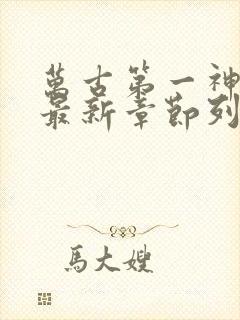 萬古第一神
最新章節列
馬大嫂